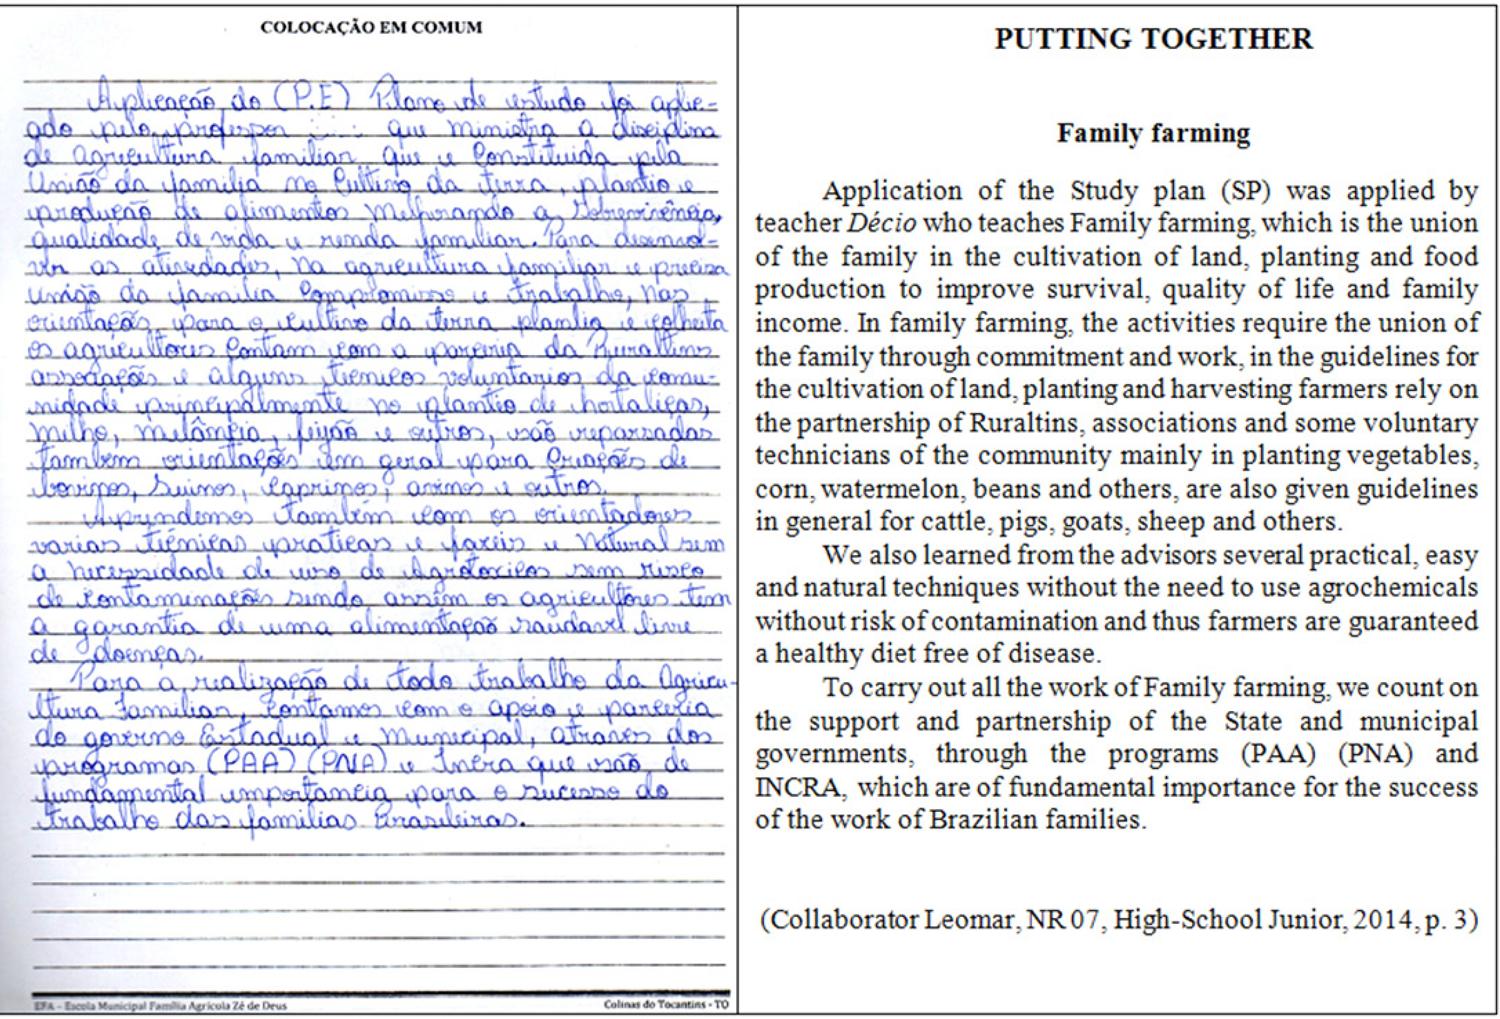 COLOCAÇÃO EM COMUM
Aplicação do (P.E) Plano de estudo foi aplic-
ado pelo professor que ministra a disciplina
de agricultura familiar que é Constituida pela
União da familia no Cultivo da terra, plantio e
produção de alimentos melhorando a Sobrevivência,
qualidade de vida e renda familiar. Para desenvol-
ver as atividades, na agricultura familiar é preciso
União da familia Compromisso e trabalho, nas
orientações para o cultivo da terra plantio e colheita
os agricultores Contam com a parceria da Ruraltins
associações e alguns técnicos voluntarios da comu-
nidade principalmente no plantio de hortaliças,
milho, melância, feijão e outros, são repassadas
também orientações em geral para Criações de
bovinos, Suinos, Caprinos, ovinos e outros.
Aprendemos também com os orientadores
varias técnicas praticas e faceis e Natural sem
a necessidade de uso de Agrotoxicos sem risco
de contaminação sendo assim os agricultores tem
a garantia de uma alimentação saudavel livre
de doenças.
Para a realização de todo trabalho da Agricu-
ltura Familiar, Contamos com o apoio e parceria
do governo Estadual e Municipal, através dos
programas (PAA) (PNA) e Incra que são de
fundamental importancia para o sucesso do
trabalho das familias Brasileiras.
EFA - Escola Municipal Família Agrícola Zé de Deus
Colinas do Tocantins - TO
PUTTING TOGETHER
Family farming
Application of the Study plan (SP) was applied by
teacher Décio who teaches Family farming, which is the union
of the family in the cultivation of land, planting and food
production to improve survival, quality of life and family
income. In family farming, the activities require the union of
the family through commitment and work, in the guidelines for
the cultivation of land, planting and harvesting farmers rely on
the partnership of Ruraltins, associations and some voluntary
technicians of the community mainly in planting vegetables,
corn, watermelon, beans and others, are also given guidelines
in general for cattle, pigs, goats, sheep and others.
We also learned from the advisors several practical, easy
and natural techniques without the need to use agrochemicals
without risk of contamination and thus farmers are guaranteed
a healthy diet free of disease.
To carry out all the work of Family farming, we count on
the support and partnership of the State and municipal
governments, through the programs (PAA) (PNA) and
INCRA, which are of fundamental importance for the success
of the work of Brazilian families.
(Collaborator Leomar, NR 07, High-School Junior, 2014, p. 3)